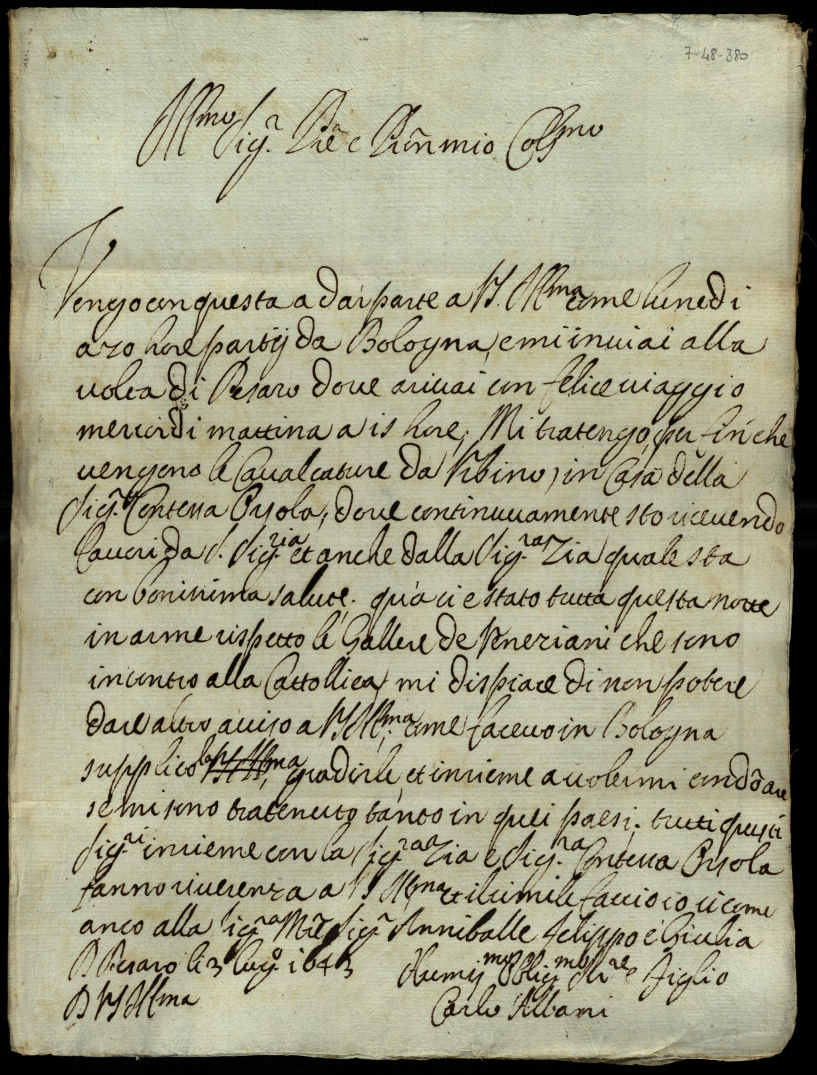 7-48-380
Ill.mo Sig.r P̃re e P̃ron mio Coll.mo
Vengo con questa a dar parte a V.S. Ill.ma come lunedi
a 20 hore partij da Bologna, e mi inviai alla
volta di Pesaro dove arivai con felice viaggio
mercordi mattina a 15 hore, Mi tratengo per fin che
vengono le Cavalcature da Urbino, in Casa della
Sig.ra Contessa Orsola, dove continuvamente sto ricevendo
favori da S. Sig.ria et anche dalla Sig.ra Zia quale sta
con bonissima salute. quà ci è stato tutta questa notte
in arme rispetto le Gallere de Veneziani che sono
incontro alla Cattollica, mi dispiace di non potere
dare altro aviso a V.S. Ill.ma, come facevo in Bologna
supplico la V.S. Ill.ma, gradirle, et insieme a volermi condõare
se mi sono tratenuto tanto in quei paesi. tutti questi
Sig.ri insieme con la Sig.ra Zia e Sig.ra Contessa Orsola
fanno riverenza a V.S. Ill.ma et il simile faccio io si come
anco alla Sig.ra M̃re Sig.r Anniballe Felippo e Giulia
D Pesaro li 3 lug.o 1643
D V.S. Ill.ma
Humij.mo Oblig.mo Ser.re e Figlio
Carlo Albani